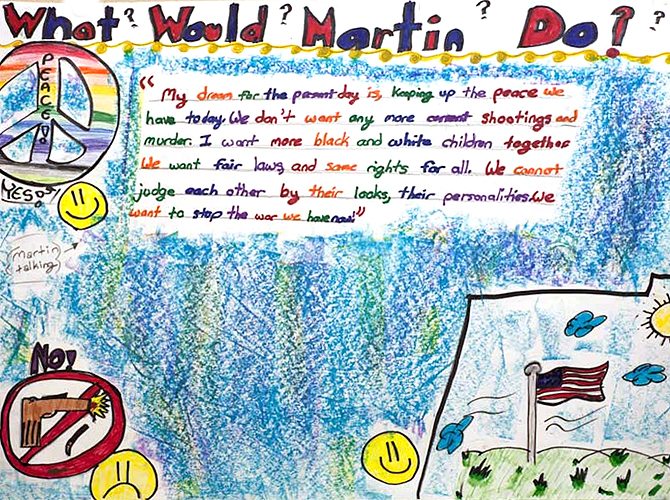 What? Would? Martin? Do??
PEACE!
"My dream for the present day is, Keeping up the peace we
have today. We don't want any more current shootings and
murder. I want more black and white children together
We want fair laws, and same rights for all. We cannot
judge each other by their looks, their personalities. We
want to stop the war we have now!"
YES!
Martin
talking
No!